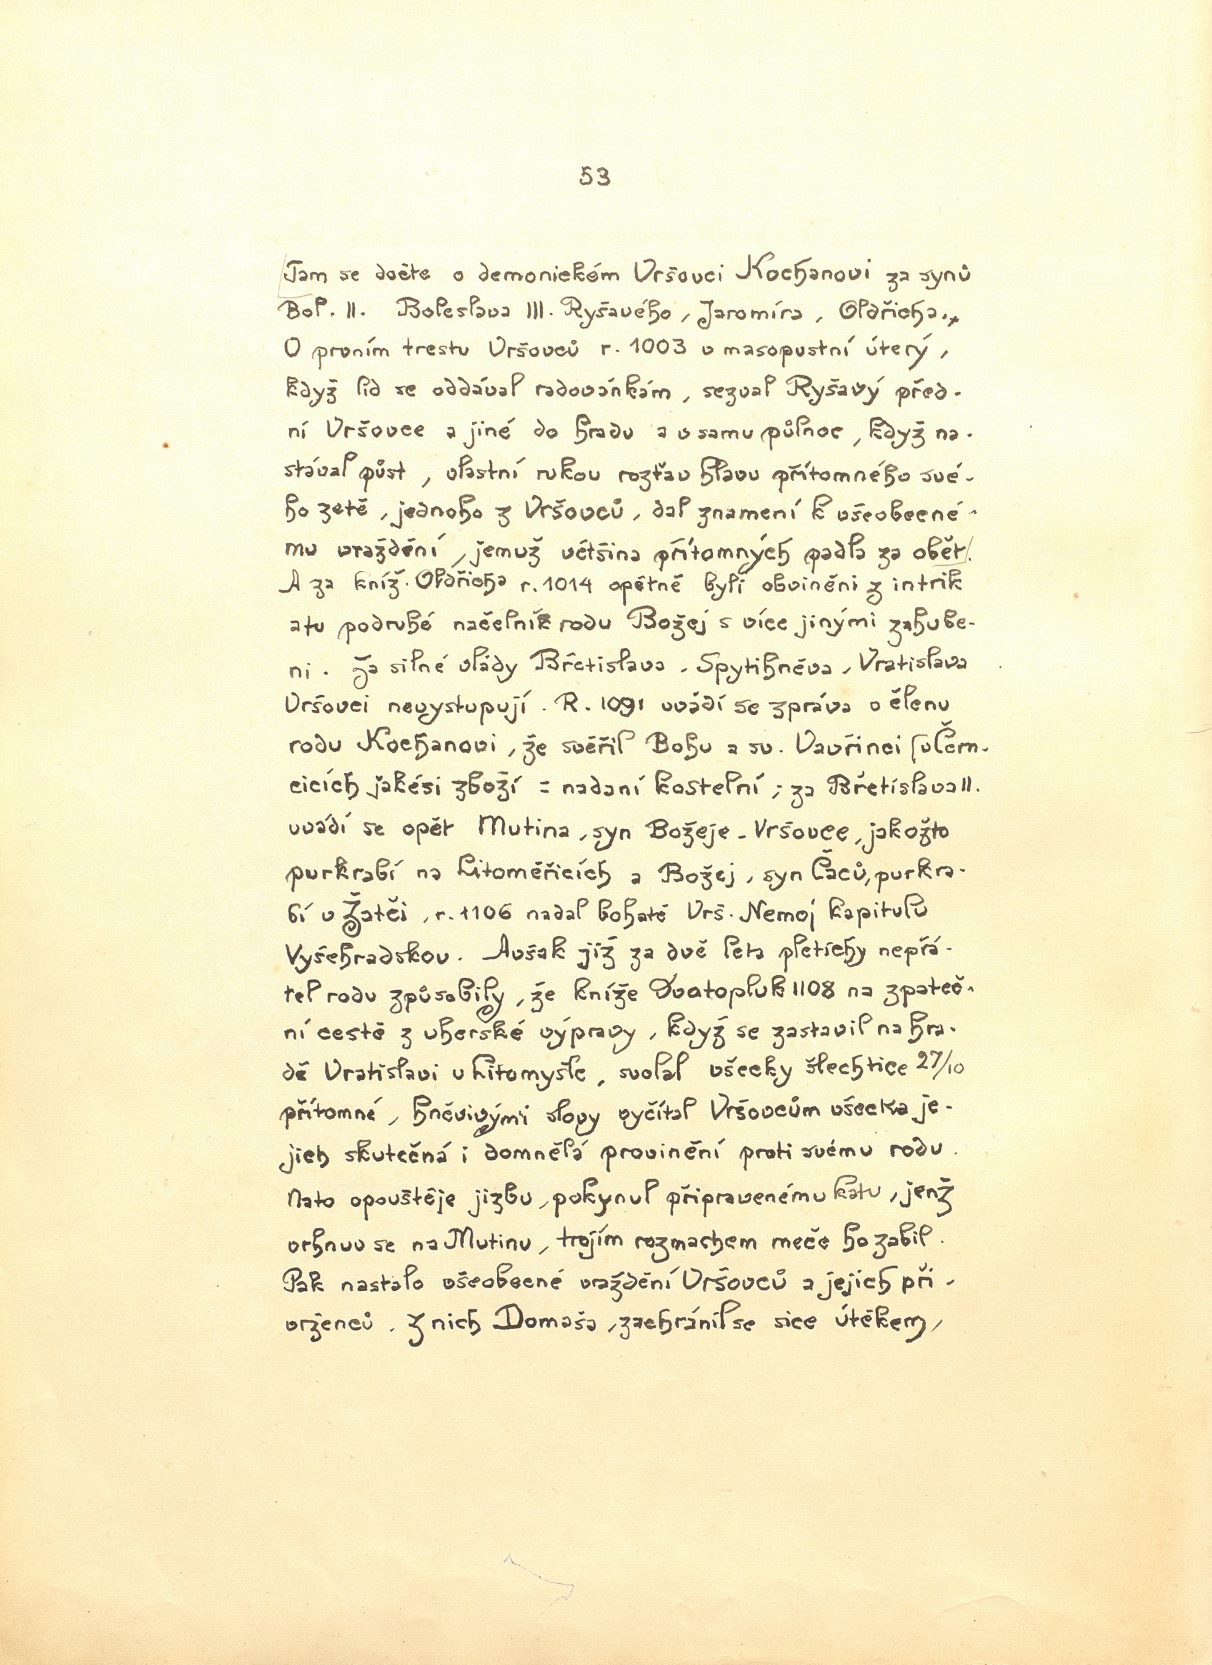 53
Tam se dočte o demonickém Vršovci Kochanovi za synů
Bol. II. Boleslava III. Ryšavého, Jaromíra, Oldřicha.
O prvním trestu Vršovců r. 1003 v masopustní úterý,
když lid se oddával radovánkám, sezval Ryšavý před-
ní Vršovce a jiné do hradu a v samu půlnoc, když na-
stával půst, vlastní rukou rozťav hlavu přítomného své-
ho zetě, jednoho z Vršovců, dal znamení k všeobecné-
mu vraždění, jemuž většina přítomných padla za oběť.
A za kníž. Oldřicha r. 1014 opětně byli obviněni z intrik
a tu podruhé načelník rodu Božej s více jinými zahube-
ni. Za silné vlády Břetislava, Spytihněva, Vratislava
Vršovci nevystupují. R. 1091 uvádí se zpráva o členu
rodu Kochanovi, že svěřil Bohu a sv. Vavřinci (v Čern-
cicích jakési zboží = nadaní kostelní; za Břetislava II.
uvádí se opět Mutina, syn Božeje - Vršovce, jakožto
purkrabí na Litoměřicích a Božej, syn Čaců, purkra-
bí v Žatči, r. 1106 nadal bohatě Vrš. Nemoj kapitulu
Vyšehradskou. Avšak již za dvě léta pletichy nepřá-
tel rodu způsobily, že kníže Svatopluk 1108 na zpáteč-
ní cestě z uherské výpravy, když se zastavil na hra-
dě Vratislavi u Litomyšle, svolal všecky šlechtice 27/10
přítomné, hněvivými slovy vyčítal Vršovcům všecka je-
jich skutečná i domnělá provinění proti svému rodu.
Nato opouštěje jizbu, pokynul připravenému katu, jenž
vrhnuv se na Mutinu, trojím rozmachem meče ho zabil.
Pak nastalo všeobecné vraždění Vršovců a jejich pří-
vrženců. Z nich Domaša, zachránil se sice útěkem,